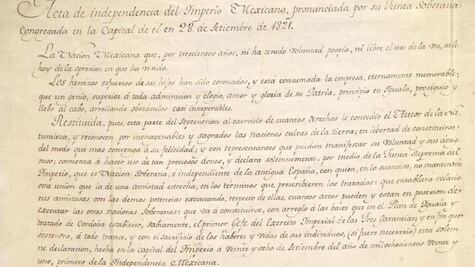 Acta de independencia del Imperio Mexicano, pronunciada por su Junta Soberana
Congregada en la Capital de él en 28 de Setiembre de 1821.
La Nacion Mexicana que, por trescientos años, ni ha tenido voluntad propia, ni libre el uso de la voz, sale
hoy de la opresion en que ha vivido.
Los heroicos esfuerzos de sus hijos han sido coronados, y está consumada la empresa, eternamente memorable,
que un genio, superior á toda admiracion y elogio, amor y gloria de su Patria, principió en Iguala, prosiguió y
llebó al cabo, arrollando obstaculos casi insuperables.
Restituida, pues, esta parte del Septentrion al exercicio de cuantos Derechos le concedió el Autor de la Na-
turaleza, y reconocen por inenagenables y sagrados las naciones cultas de la tierra; en libertad de constituirse
del modo que mas convenga á su felicidad; y con representantes que puedan manifestar su voluntad y sus desig-
nios; comienza á hacer uso de tan preciosos dones, y declara solemnemente, por medio de la Junta Suprema del
Imperio, que es Nacion Soberana, é independiente de la antigua España, con quien, en lo succesivo, no mantendrá
otra union que la de una amistad estrecha, en los terminos que prescribieren los tratados: que entablará relacio-
nes amistosas con las demas potencias executando, respecto de ellas, cuantos actos pueden y están en posesion de
executar las otras naciones Soberanas: que va á constituirse, con arreglo á las bases que en el Plan de Iguala y
tratado de Cordoba estableció, sabiamente, el primer Gefe del Exercito Imperial de las Tres Garantias; y en fin que
sostendrá, á todo trance, y con el sacrificio de los haberes y vidas de sus individuos, (si fuere necesario) esta solem-
ne declaracion, hecha en la capital del Imperio á veinte y ocho de Setiembre del año de mil ochocientos veinte y
uno, primero de la Independencia Mexicana.